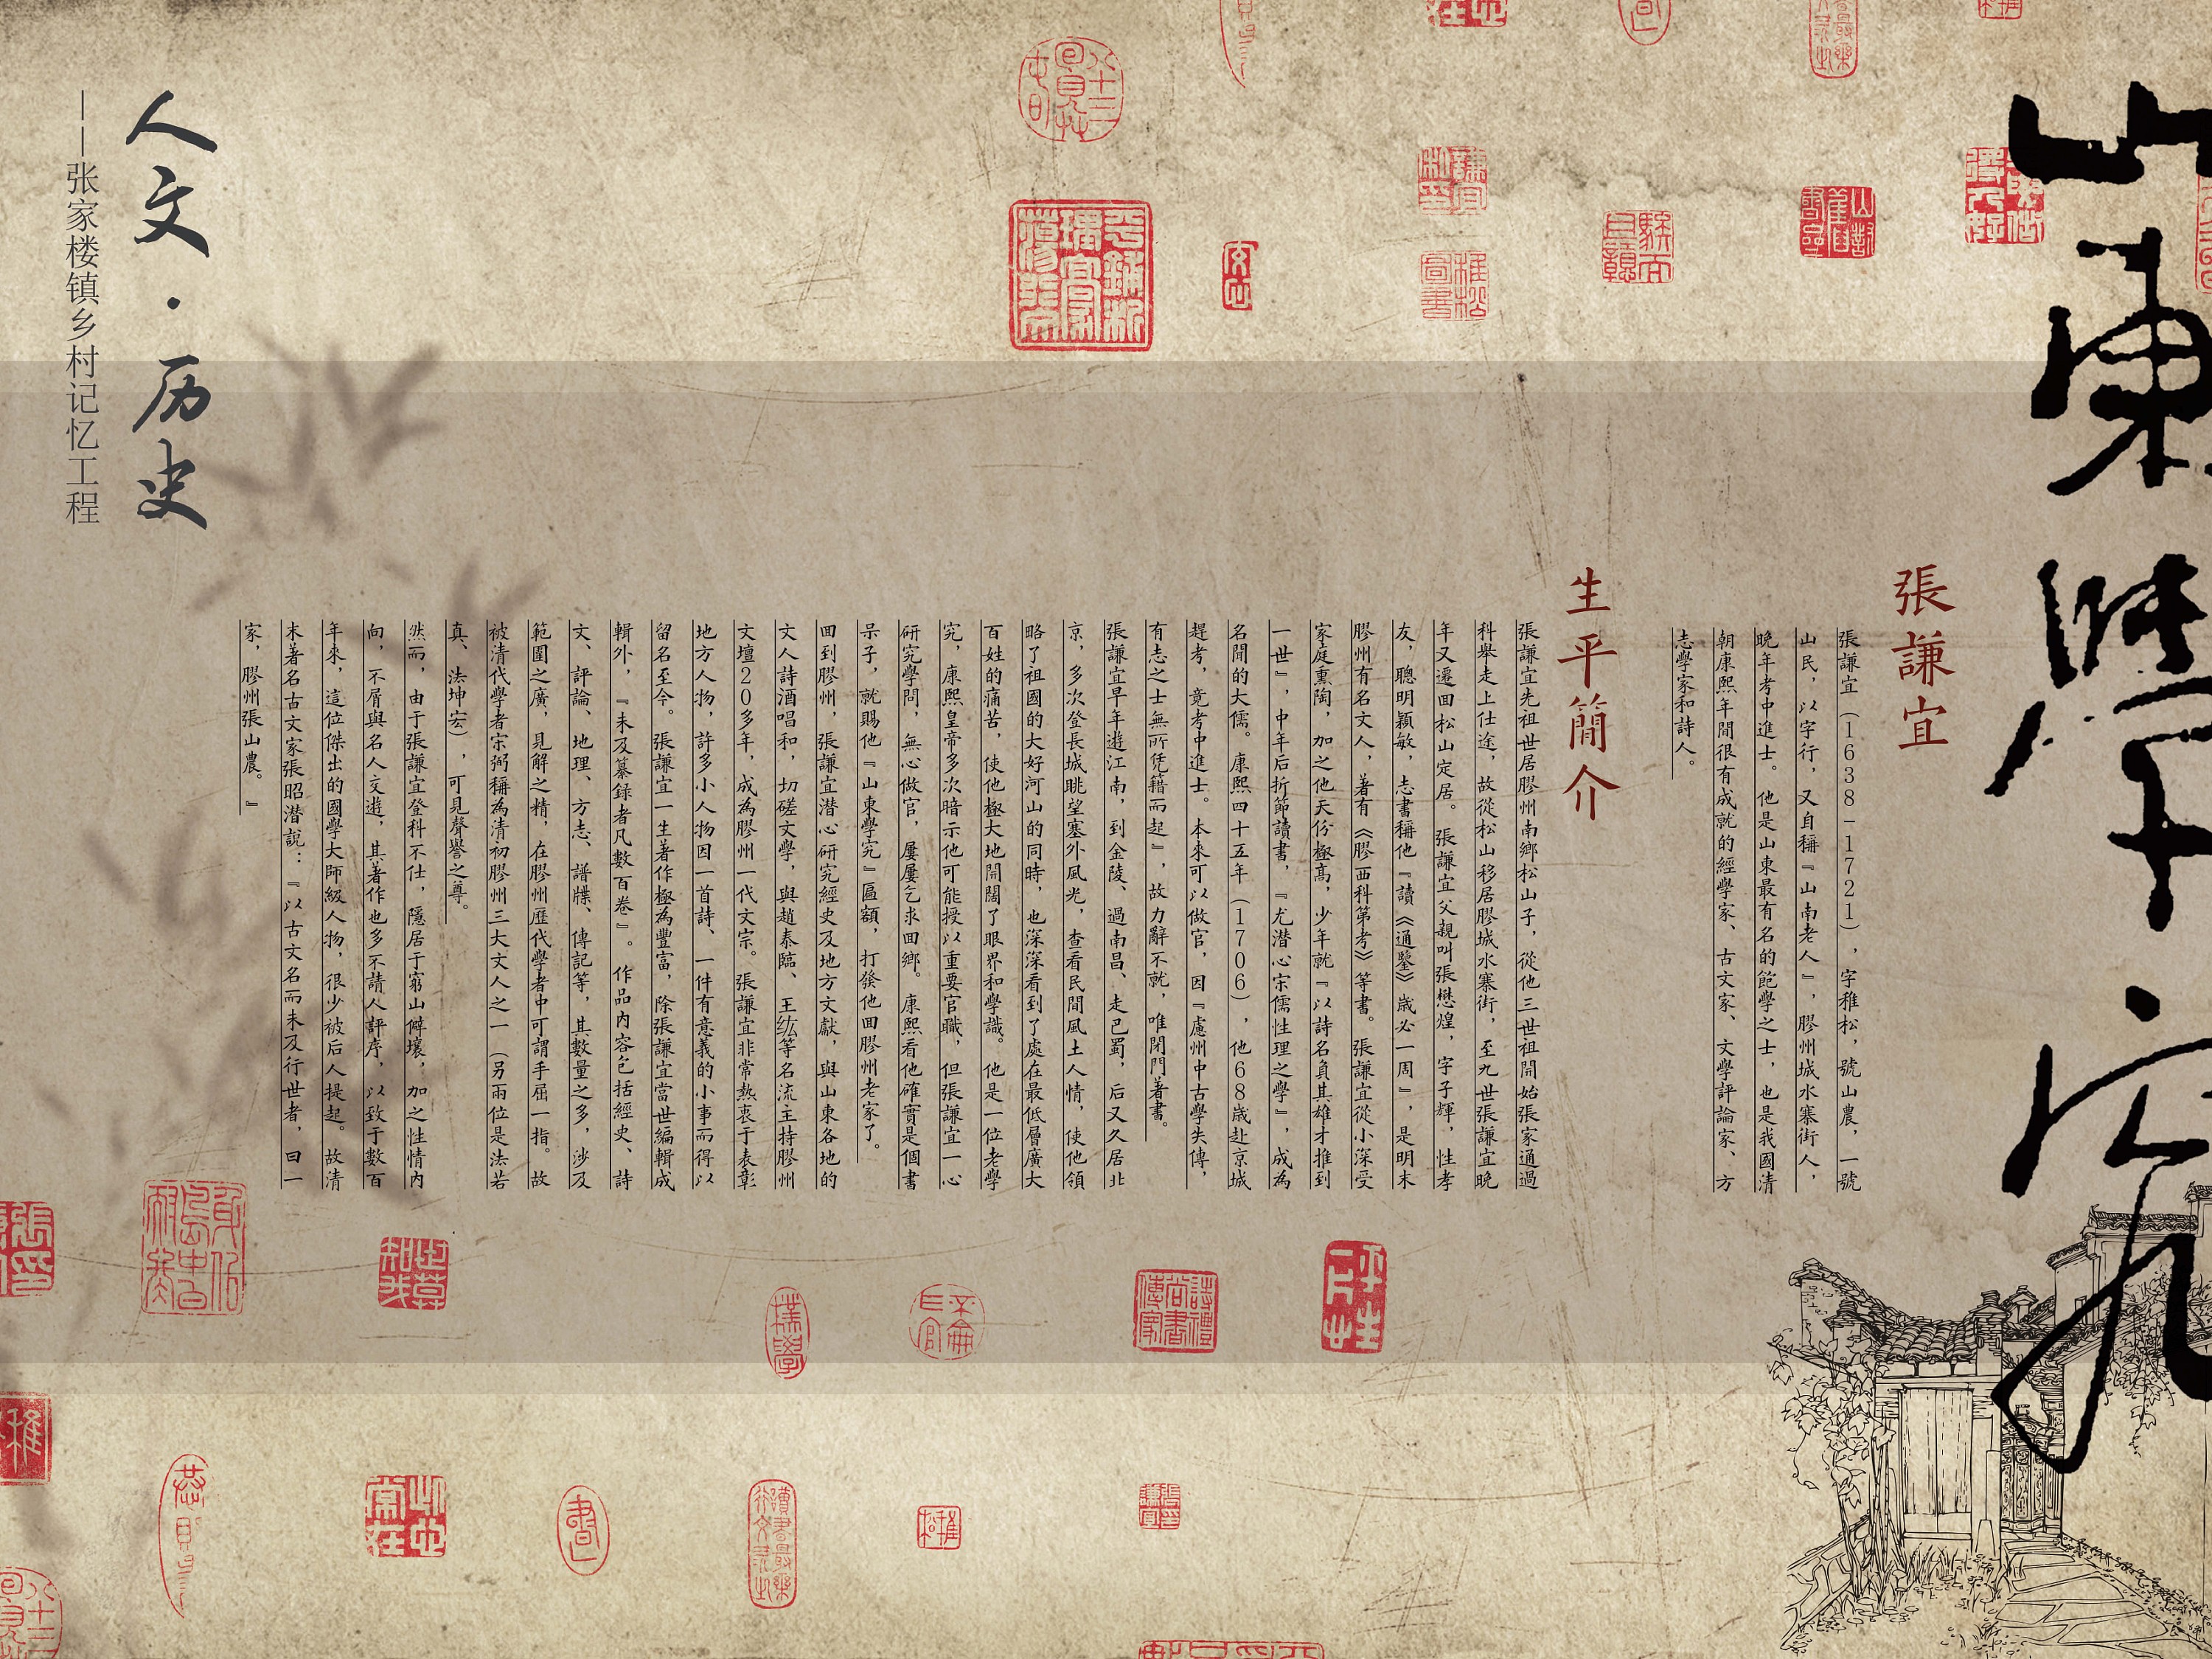 山東學究
張謙宜
張謙宜（1638-1721），字稚松，號山農，一號
山民，以字行，又自稱『山南老人』，膠州城水寨街人，
晚年考中進士。他是山東最有名的飽學之士，也是我國清
朝康熙年間很有成就的經學家、古文家、文學評論家、方
志學家和詩人。
生平簡介
張謙宜先祖世居膠州南鄉松山子，從他三世祖開始張家通過
科舉走上仕途，故從松山移居膠城水寨街，至九世張謙宜晚
年又遷回松山定居。張謙宜父親叫張懋煌，字子輝，性孝
友，聰明穎敏，志書稱他『讀《通鑒》歲必一周』，是明末
膠州有名文人，著有《膠西科第考》等書。張謙宜從小深受
家庭熏陶，加之他天份極高，少年就『以詩名負其雄才推到
一世』，中年后折節讀書，『尤潜心宋儒性理之學』，成為
名聞的大儒。康熙四十五年（1706），他68歲赴京城
趕考，竟考中進士。本來可以做官，因『慮州中古學失傳，
有志之士無所凭籍而起』，故力辭不就，唯閉門著書。
張謙宜早年遊江南，到金陵、過南昌、走巴蜀，后又久居北
京，多次登長城眺望塞外風光，查看民間風土人情，使他領
略了祖國的大好河山的同時，也深深看到了處在最低層廣大
百姓的痛苦，使他極大地開闊了眼界和學識。他是一位老學
究，康熙皇帝多次暗示他可能授以重要官職，但張謙宜一心
研究學問，無心做官，屢屢乞求回鄉。康熙看他確實是個書
呆子，就賜他『山東學究』匾額，打發他回膠州老家了。
回到膠州，張謙宜潜心研究經史及地方文獻，與山東各地的
文人詩酒唱和，切磋文學，與趙泰臨、王纮等名流主持膠州
文壇20多年，成為膠州一代文宗。張謙宜非常熱衷于表彰
地方人物，許多小人物因一首詩、一件有意義的小事而得以
留名至今。張謙宜一生著作極為豐富，除張謙宜當世編輯成
輯外，『未及纂録者凡數百卷』。作品內容包括經史、詩
文、評論、地理、方志、譜牒、傳記等，其數量之多，涉及
範圍之廣，見解之精，在膠州歷代學者中可謂手屈一指。故
被清代學者宋弼稱為清初膠州三大文人之一（另兩位是法若
真、法坤宏），可見聲譽之尊。
然而，由于張謙宜登科不仕，隱居于窮山僻壤，加之性情內
向，不屑與名人交遊，其著作也多不請人評序，以致于數百
年來，這位傑出的國學大師級人物，很少被后人提起。故清
末著名古文家張昭潜說：『以古文名而未及行世者，曰一
家，膠州張山農。』
人文·历史
——张家楼镇乡村记忆工程